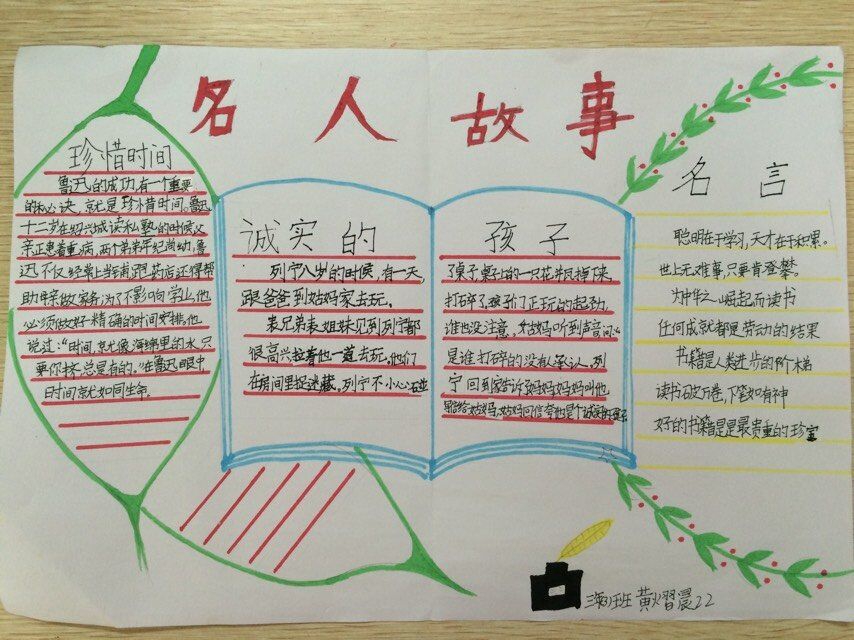 名人故事
珍惜时间
鲁迅的成功,有一个重要
的秘诀,就是珍惜时间。鲁迅
十二岁在绍兴城读私塾的时候父
亲正患着重病,两个弟弟年纪尚幼,鲁
迅不仅经常上当铺,跑药店,还得帮
助母亲做家务;为了不影响学业,他
必须做好精确的时间安排。他
说过:“时间,就像海绵里的水,只
要你挤,总是有的。”在鲁迅眼中,
时间就如同生命。
诚实的
列宁八岁的时候,有一天,
跟爸爸到姑妈家去玩。
表兄弟表姐妹见到列宁都
很高兴拉着他一道去玩。他们
在房间里捉迷藏。列宁不小心碰
孩子
了桌子,桌子上的一只花瓶掉下来,
打碎了,孩子们正玩的起劲,
谁也没注意,姑妈听到声音问:“
是谁打碎的没有人承认。列
宁回到家告诉妈妈妈妈叫他
写信给姑妈,姑妈回信夸他是个诚实的孩子
名言
聪明在于学习,天才在于积累。
世上无难事,只要肯登攀。
为中华之崛起而读书
任何成就都是劳动的结果
书籍是人类进步的阶梯
读书破万卷,下笔如有神
好的书籍是是最贵重的珍宝
三(3)班 黄熠晨22